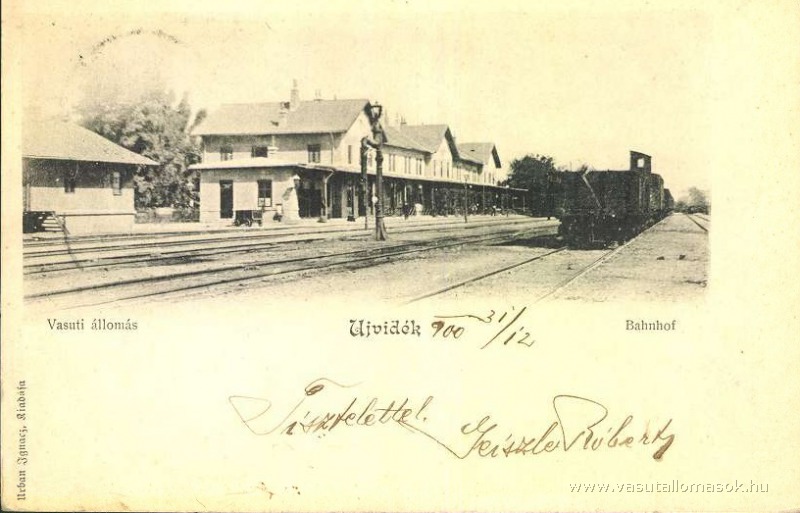 Vasuti állomás
Ujvidék 900 31/12
Bahnhof
Tisztelettel.
Geiszler Róbert
Urban Ignacz, Kiadája
www.vasutallomasok.hu